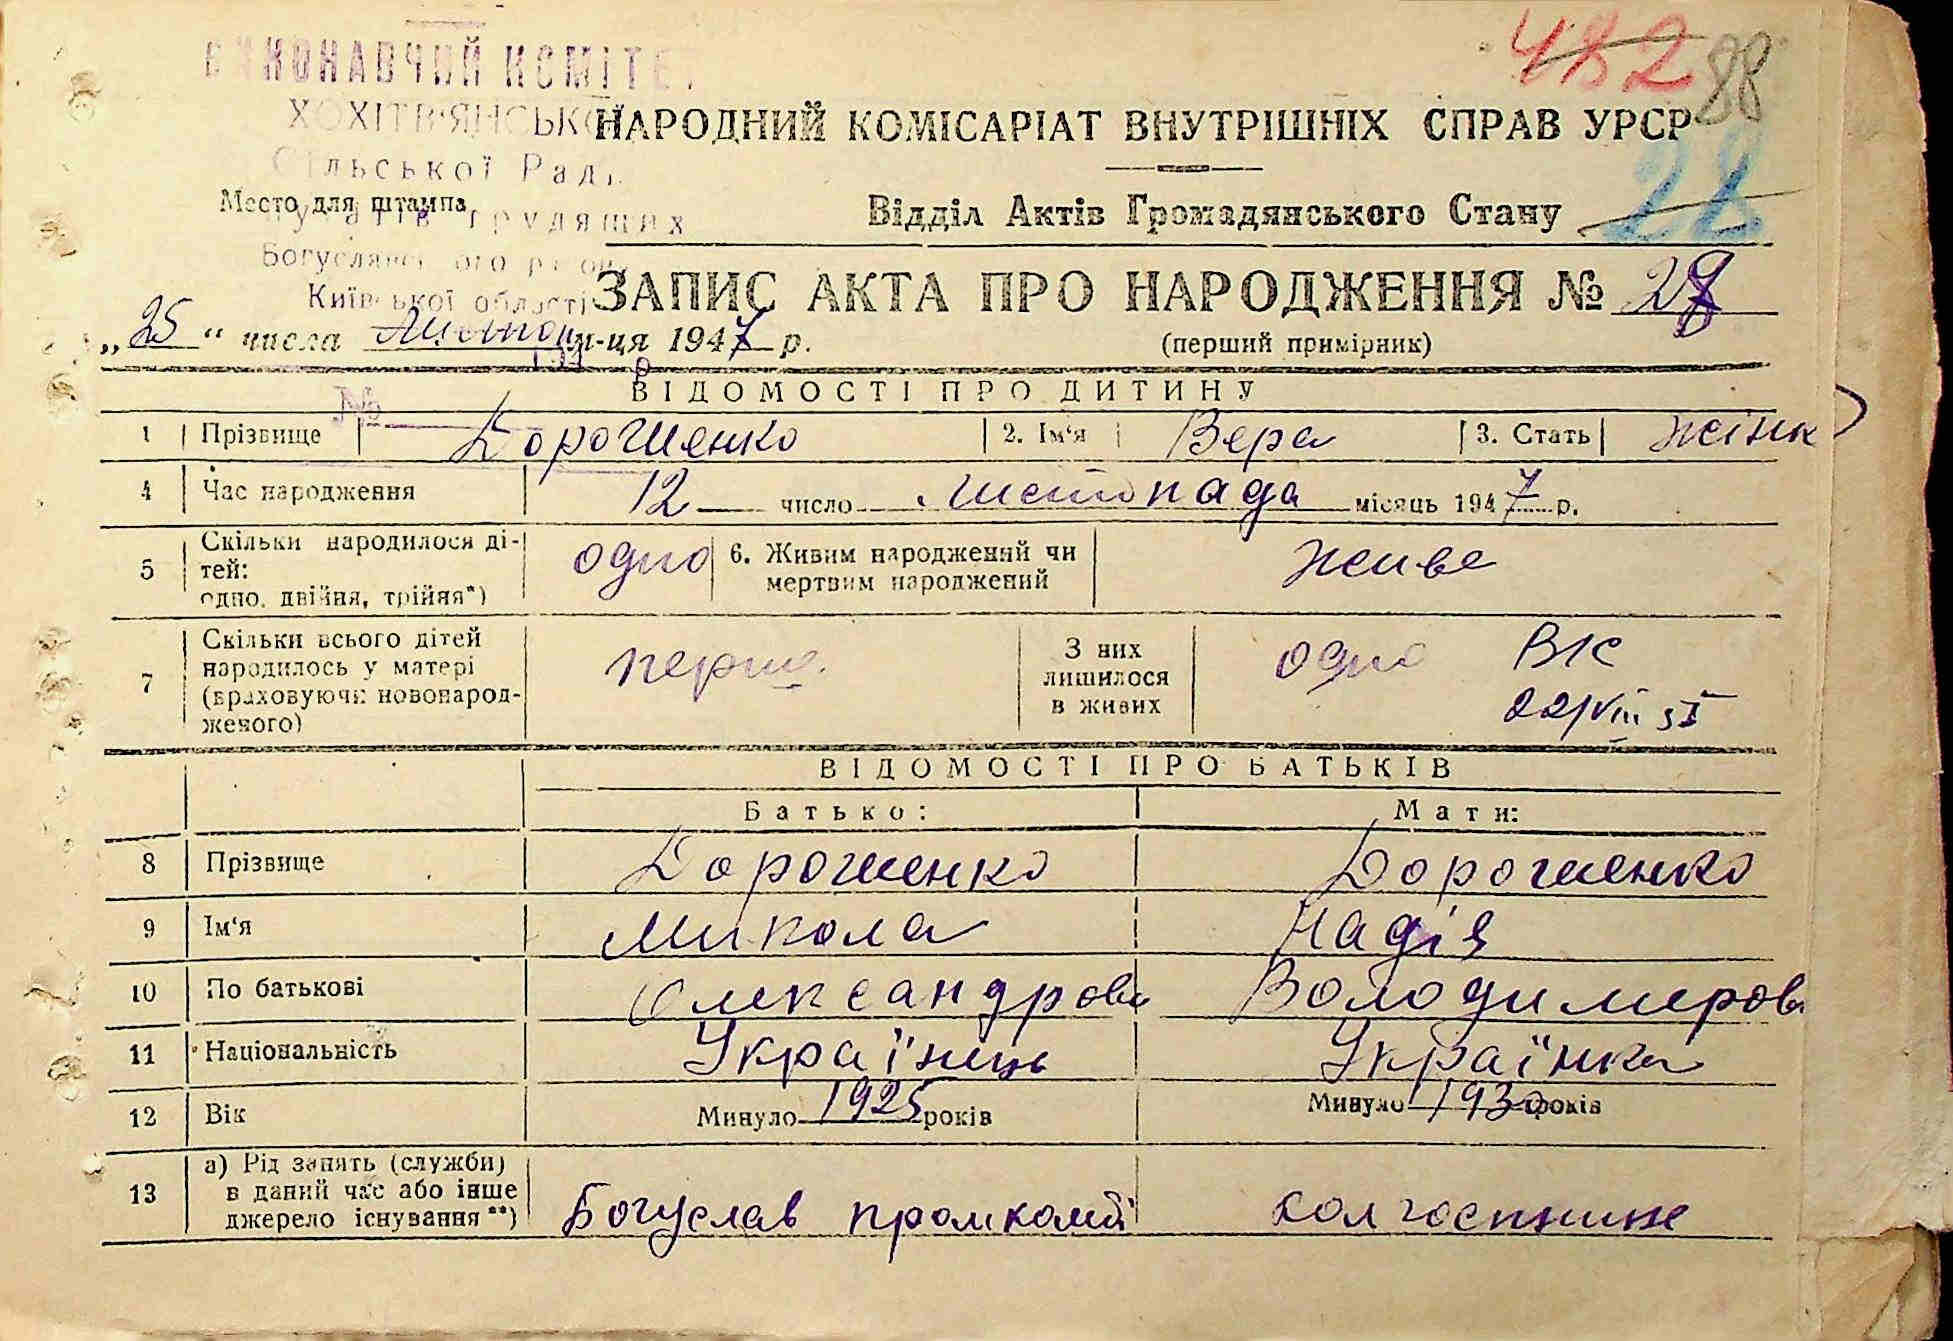 482 88
ВИКОНАВЧИЙ КОМІТЕТ
ХОХІТВЯНСЬКО
НАРОДНИЙ КОМІСАРІАТ ВНУТРІШНІХ СПРАВ УРСР
Сільської Ради
28
Место для штампа
трудящих
Відділ Актів Громадянського Стану
Богуславського району
Київської області
ЗАПИС АКТА ПРО НАРОДЖЕННЯ №
„25“ числа листопа м-ця 1947 р.
(перший примірник)
ВІДОМОСТІ ПРО ДИТИНУ
№
1 Прізвище Дорошенко 2. Ім‘я Вера 3. Стать жінк
4 Час народження 12 число листопада місяць 1947 р.
5 Скільки народилося ді-
тей:
одно, двійня, трійня*) одно 6. Живим народжений чи
мертвим народжений живе
7 Скільки всього дітей
народилось у матері
(враховуючи новонарод-
женого) перше З них
лишилося
в живих одно
ВІДОМОСТІ ПРО БАТЬКІВ
Батько: Мати:
8 Прізвище Дорошенко Дорошенко
9 Ім‘я Микола Надія
10 По батькові Олександрови Володимеров
11 Національність Українець Українка
12 Вік Минуло 1925 років Минуло 1930 років
13 а) Рід занять (служби)
в даний час або інше
джерело існування**) Богуслав промкомб колгоспниця